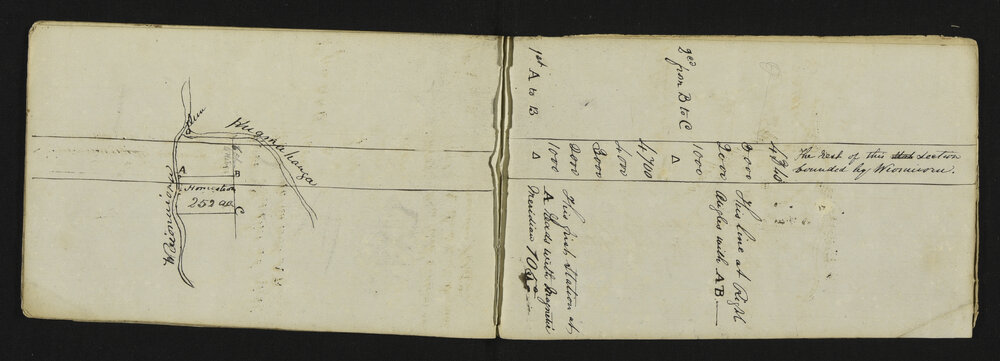 Hugmahanga
Run
A
B
Homestead
252 ac
C
1st A to B
Δ
1000
2000
3000
4000
4700
This first Station at
A Ends with Magnetic
Meridian 70
2nd from B to C
Δ
1000
2000
3000
4840
This line at Right
Angles with AB
The rest of this section
bounded by